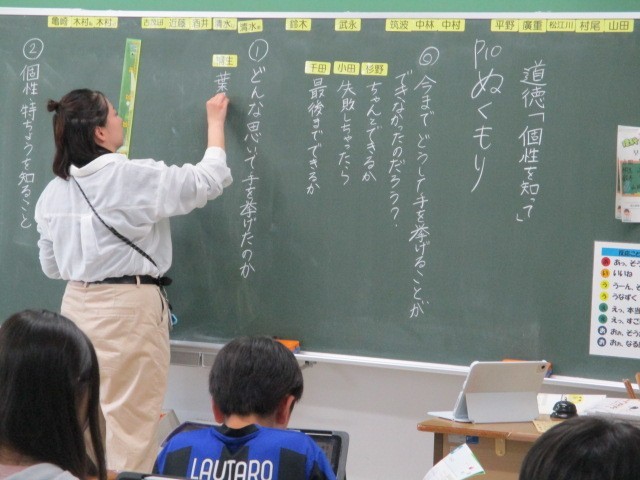 道徳「個性を知って」
P10 ぬくもり
⓪ 今まで どうして手を挙げることが
できなかったのだろう?
珍野
ちゃんとできるか
小田
失敗しちゃったら
千田
最後までできるか
① どんな思いで手を挙げたのか
葉
② 個性 特ちょうを知ること
亀崎
木村
木村
近藤
酒井
清水
清水
鈴木
武永
筑波
中林
中村
平野
廣重
松江川
村尾
山田
あっ、そう
いいね
うーん、そ
うなずく
えっ、本当
えっ、すご
おぉ、そ
おぉ、なる
LAUTARO